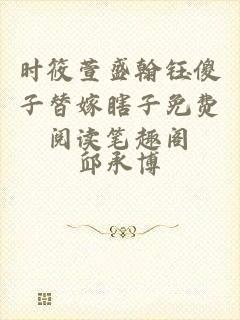 时筱萱盛翰钰傻
子替嫁瞎子免费
阅读笔趣阁
邱承博